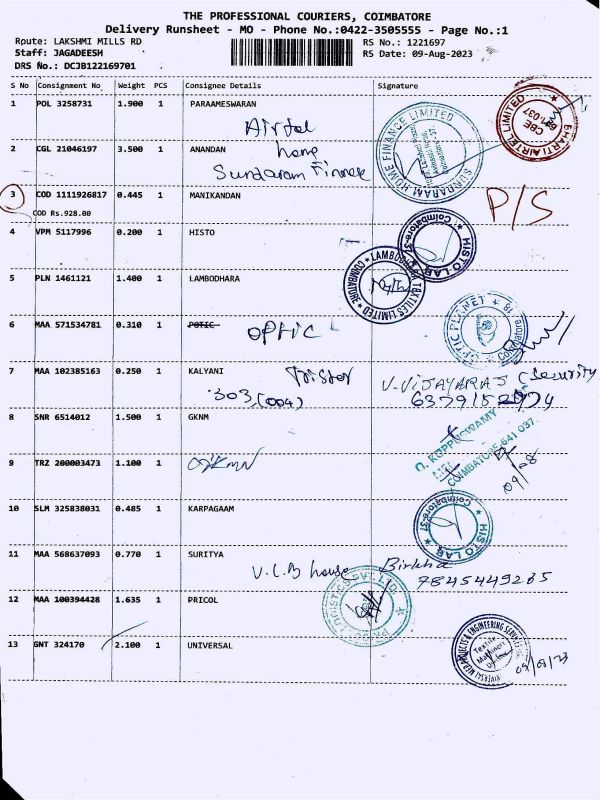 THE PROFESSIONAL COURIERS, COIMBATORE
Delivery Runsheet - MO - Phone No.:0422-3505555 - Page No.:1
Route: LAKSHMI MILLS RD RS No.: 1221697
Staff: JAGADEESH RS Date: 09-Aug-2023
DRS No.: DCJB122169701
S No Consignment No Weight PCS Consignee Details Signature
1 POL 3258731 1.900 1 PARAAMESWARAN
Airtel
BHARTI AIRTEL LIMITED CBE 641.037
2 CGL 21046197 3.500 1 ANANDAN
home
Sundaram Finance
SUNDARAM HOME FINANCE LIMITED
3 COD 1111926817 0.445 1 MANIKANDAN
COD Rs.928.00
P/S
4 VPM 5117996 0.200 1 HISTO
HISTO LAB Coimbatore-37
5 PLN 1461121 1.400 1 LAMBODHARA
LAMBODHARA TEXTILES LIMITED COIMBATORE
6 MAA 571534781 0.310 1 POTIC
OPTIC
OPTIC PLANET Coimbatore
7 MAA 102385163 0.250 1 KALYANI
Trister
303,(004)
V.VIJAYARAJ (Security
8 SNR 6514012 1.500 1 GKNM
COIMBATORE-641 037
9 TRZ 200003473 1.100 1 GKMN
09/08
10 SLM 325838031 0.485 1 KARPAGAAM
HISTO LAB Coimbatore-37
11 MAA 568637093 0.770 1 SURITYA
V.L.B house
7845449285
12 MAA 100394428 1.635 1 PRICOL
LOGISTICS PVT. LTD.
13 GNT 324170 2.100 1 UNIVERSAL
09/08/23